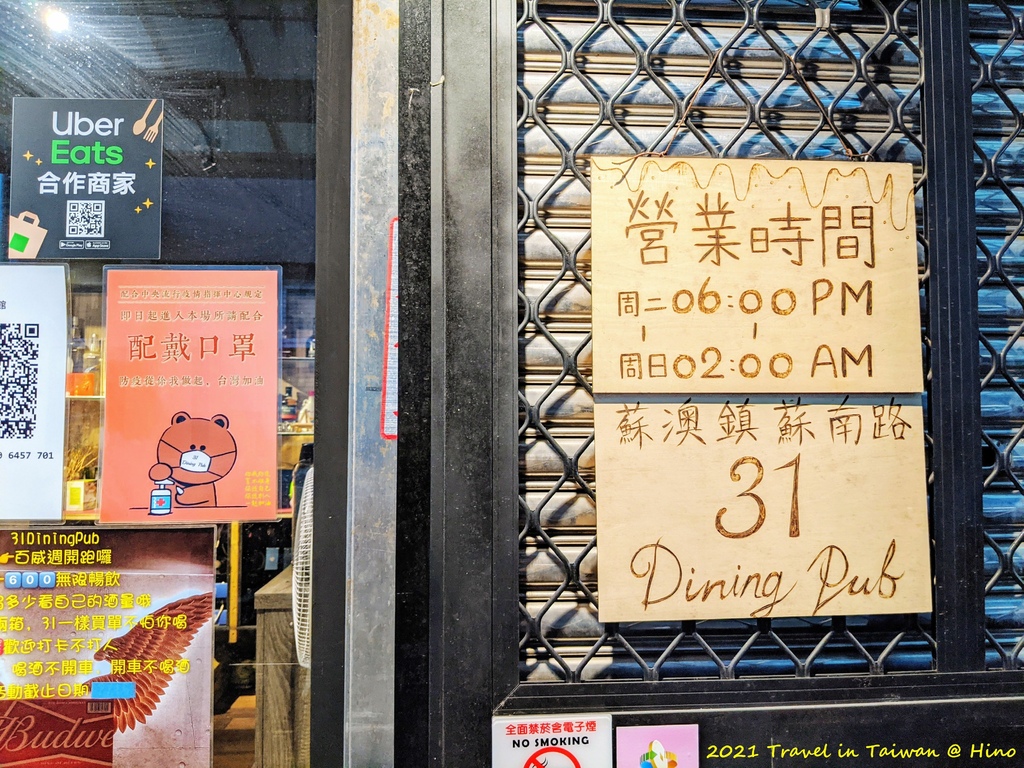 Uber
Eats
合作商家
Google Play
App Store
館
6457 701
配合中央流行疫情指揮中心規定
即日起進入本場所請配合
配戴口罩
防疫從你我做起、台灣加油
31
Dining Pub
31DiningPub
百威週開跑囉
600無限暢飲
多少看自己的酒量哦
兩箱，31一樣買單不怕你喝
歡迎打卡不打人
喝酒不開車 開車不喝酒
活動截止日期
Budwe
營業時間
周二06:00 PM
周日02:00 AM
蘇澳鎮蘇南路
31
Dining Pub
全面禁菸含電子煙
NO SMOKING
2021 Travel in Taiwan @ Hino